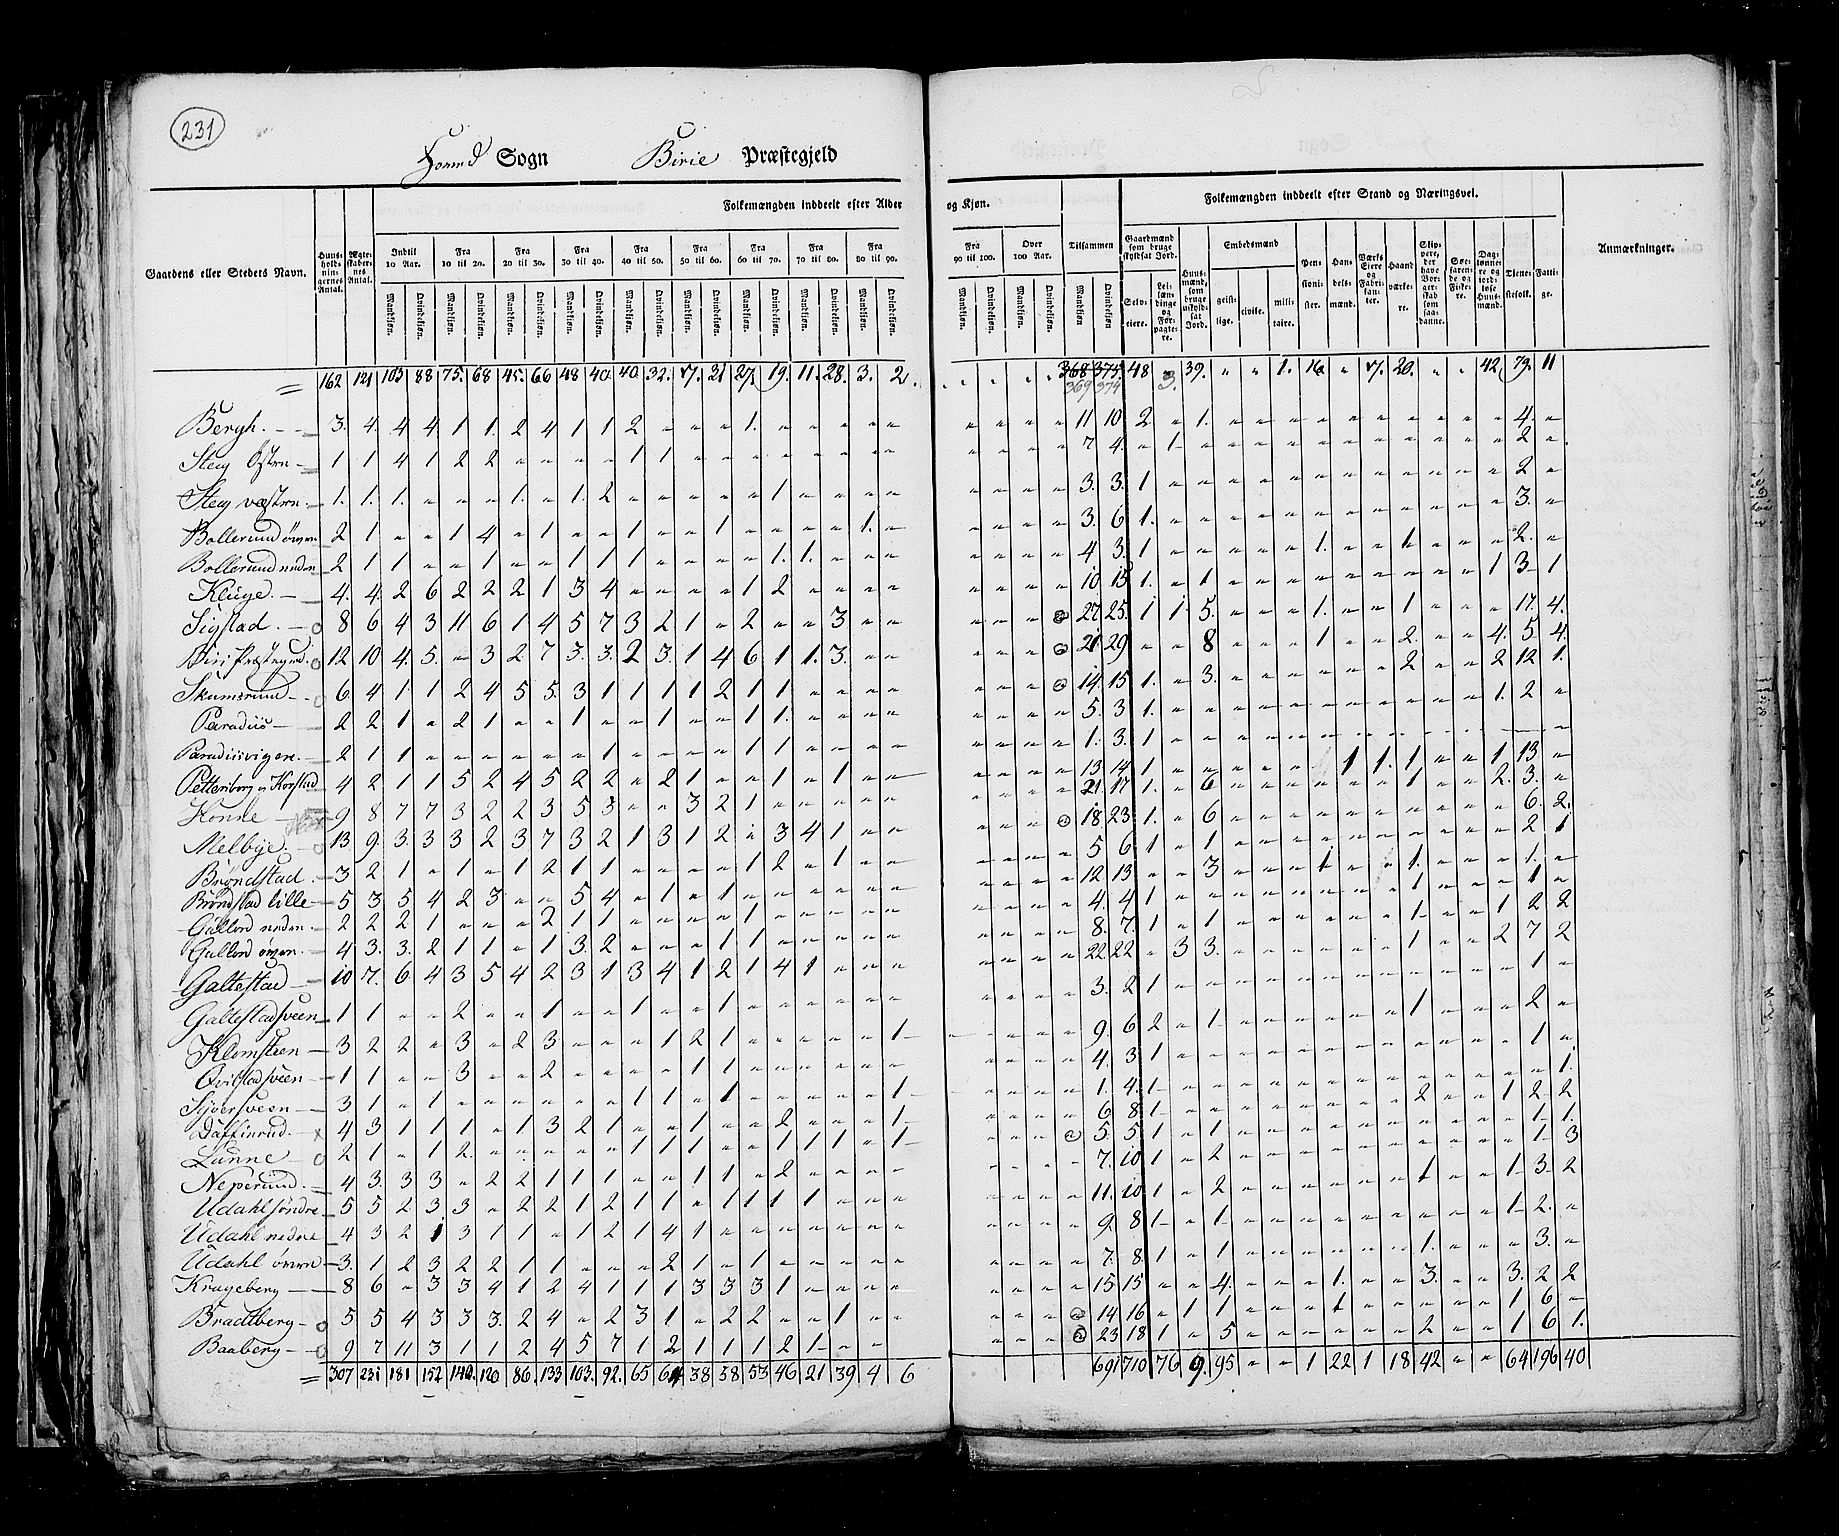 231
Sogn Birie Præstegjeld
Folkemængden inddeelt efter Alder og Kjøn. Folkemængden inddeelt efter Stand og Næringsvei.
Gaardens eller Stedets Navn. Huus-holdnin-gernes Antal. Ægte-skaber-nes Antal. Indtil 10 Aar. Fra 10 til 20. Fra 20 til 30. Fra 30 til 40. Fra 40 til 50. Fra 50 til 60. Fra 60 til 70. Fra 70 til 80. Fra 80 til 90. Fra 90 til 100. Over 100 Aar. Tilsammen Gaardmænd som bruge skyldsat Jord. Huus-mænd, som bruge uskyld-sat Jord. Embedsmænd Pen-sioni-ster. Han-dels-mænd. Værks Eiere og Fabri-kan-ter. Haand værke-re. Tiene-stefolk. Fatti-ge. Anmærkninger.
Mandkjøn. Qvindekjøn. Selv-eiere. Lei-læn-dinge og For-pagte-re. geist-lige. civile. mili-taire.
162 121 103 88 75. 68 45. 66 48 40 40 32. 17. 31 27. 19. 11. 28. 3. 2. 368 375. 48 3. 39. " " 1. 16 " 17. 20. " " 42. 79. 11
369 374
Bergh. 3. 4. 4 4 1 1. 2 4 1 1 2 " " " 1. " " " " " 11 10 2 " 1. 4. "
Steg Østre 1 1 4 1 2 2 " " " " 1 1 7 4. " 1 2 "
Steg væstre 1. 1. 1. " " " 1. " 1. 2 " " " " " 1 3. 3. 1 2 "
Bollerud øvre 2 1 " " 1 4 " 1 " " 1 " " 1 " " " " 1. " 3. 6 1. 3. "
Bollerud neden 2 1 1 " " 1 " " 1 1 1 " " " " 1. 1. 4 3. 1 1. 1 2. "
Kluge. 4. 4. 2 6 2 2 2 1 3 4 " " " " 1 2 10 15 1. " 1 1 3 1
Sigstad. 8 6 4 3 11 6 1 4 5 7 3 2 1 " 2 " " 3 27 25. 1 1 5. 1. 1 17. 4.
Biri Præstegaard 12 10 4. 5. " 3 2 7 3. 3. 2 3. 1 4 6 1 1. 3. 21 29 " " 8 1 2. 4. 5 4.
Skumsrud 6 4 1 1 2 4 5 5. 3 1 1 1 1 2 1 1 14. 15 1. " 3. 2 2 12 1.
Paradiis 2 2 1 " 2 1 " " 1 " " 1 " " 1 1. 5. 3 1. 1. 2 "
Paradiisvigen. 2 1 1 " " " " " " 1 " " " " 1 1 1. 3. 1
Petterborg og Korstad 4 2 1 1 5 2 4 5 2 2 " 2 1 " " 1 " 1 13. 14 1 1 1. 1. 1 13 "
Honne 9 8 7 7 3 2 2 3 5 3 " " 3 2 1 21 17 1. " 6 1 2. 3. "
Melbye. 13 9. 3. 3 3 2 3 7 3 2 1 3 1 2 " 3 4 1 18 23 1. " 6 6. 2.
Brøndstad. 3 2 1 " 1 " 1 2 1 1 " " " " 1 2 " 1 5 6 1 " 1 2 1
Brøndstad lille 5 3 5 4 2 3 " " 5 4 " 1 " 1 12 13 " " 3 1 1. 1. "
Gullord neden. 2 2 2 1 " " " 2 1 1 " " " " 1 4. 4 1 1 1 "
Gullord øvren. 4 3. 3. 2 1 1 " 1 3. 2 " " " 1 1 8. 7. 1 " 1 1 1 2 2
Galtestad 10 7. 6 4 3 5 4 2 3 1 3 4 1 2 1 4 1 22 22 " 3 3. 1 2 7 2
Galtestadsveen 1 1 " " 2 " " 1 " " 1 " " 1 3. 2 1 1 "
Klomsteen 3 2 2 " 3 " 2 3 " " " 1 2 1 " " " " " 1 9. 6 2 " 1 1 2 "
Qvilstadsveen 1 1 " " 3 " " 2 " " " " 1 1 4. 3 1 1 "
Siversveen 3 1 " 1 " " " " " " 1 1 " 1 " " " " " 1 1. 4. 1 1.
Daffinrud. 4 3 1 1 1 " 1 3 2 1 " " 1 " " 2 " " " 1 6 8 1 2 1 2 2
Lunne 2 1 " 1 2 " " " " " 1 1 1 " " 1 1 1 " 1 5. 5 1 " 1 1 1
Neperud. 4 3. 3 3 " 2 2 1 1 1 " " 1 1 " 2 7. 10 1 " 2 1 3
Udahl søndre 5 5 2 3. 3 " 2 2 1 2 1 1 " 1 1 1 1 11. 10 1 " 2 1 1 3 2
Udahl nedre 4 3 2 1 3 1 1 " 1 2 1 4 1 9. 8 1 " 1 1 2. "
Udahl øvren 3. 1 2 3 2 2 1 1 " " " 2 1 " 1 7. 8 1 " 1 1. 3. "
Krageberg 8 6 " 3 3 4 1 2 4 1 1 1 3 3 3 1 15 15 " " 4. 1. 3. 3. 2 2
Bradtberg 5 5 4 3 3 3. 2 4 " 2 3 1 " 2 2 " " 1 14 16 " 1 1 1 1 6 "
Baaberg 9 7 11 3 1 1 2 4 5 7 1 2 1 1 1 2 1 23 18 1 " 5 2 1 6 1.
307 231 181 152 140. 120 86. 133 103. 92. 65 64 38 58 53 46 21 39 4 6 691 710 76 9. 95 " " 1 22 1 18 42 " " 64 196 40